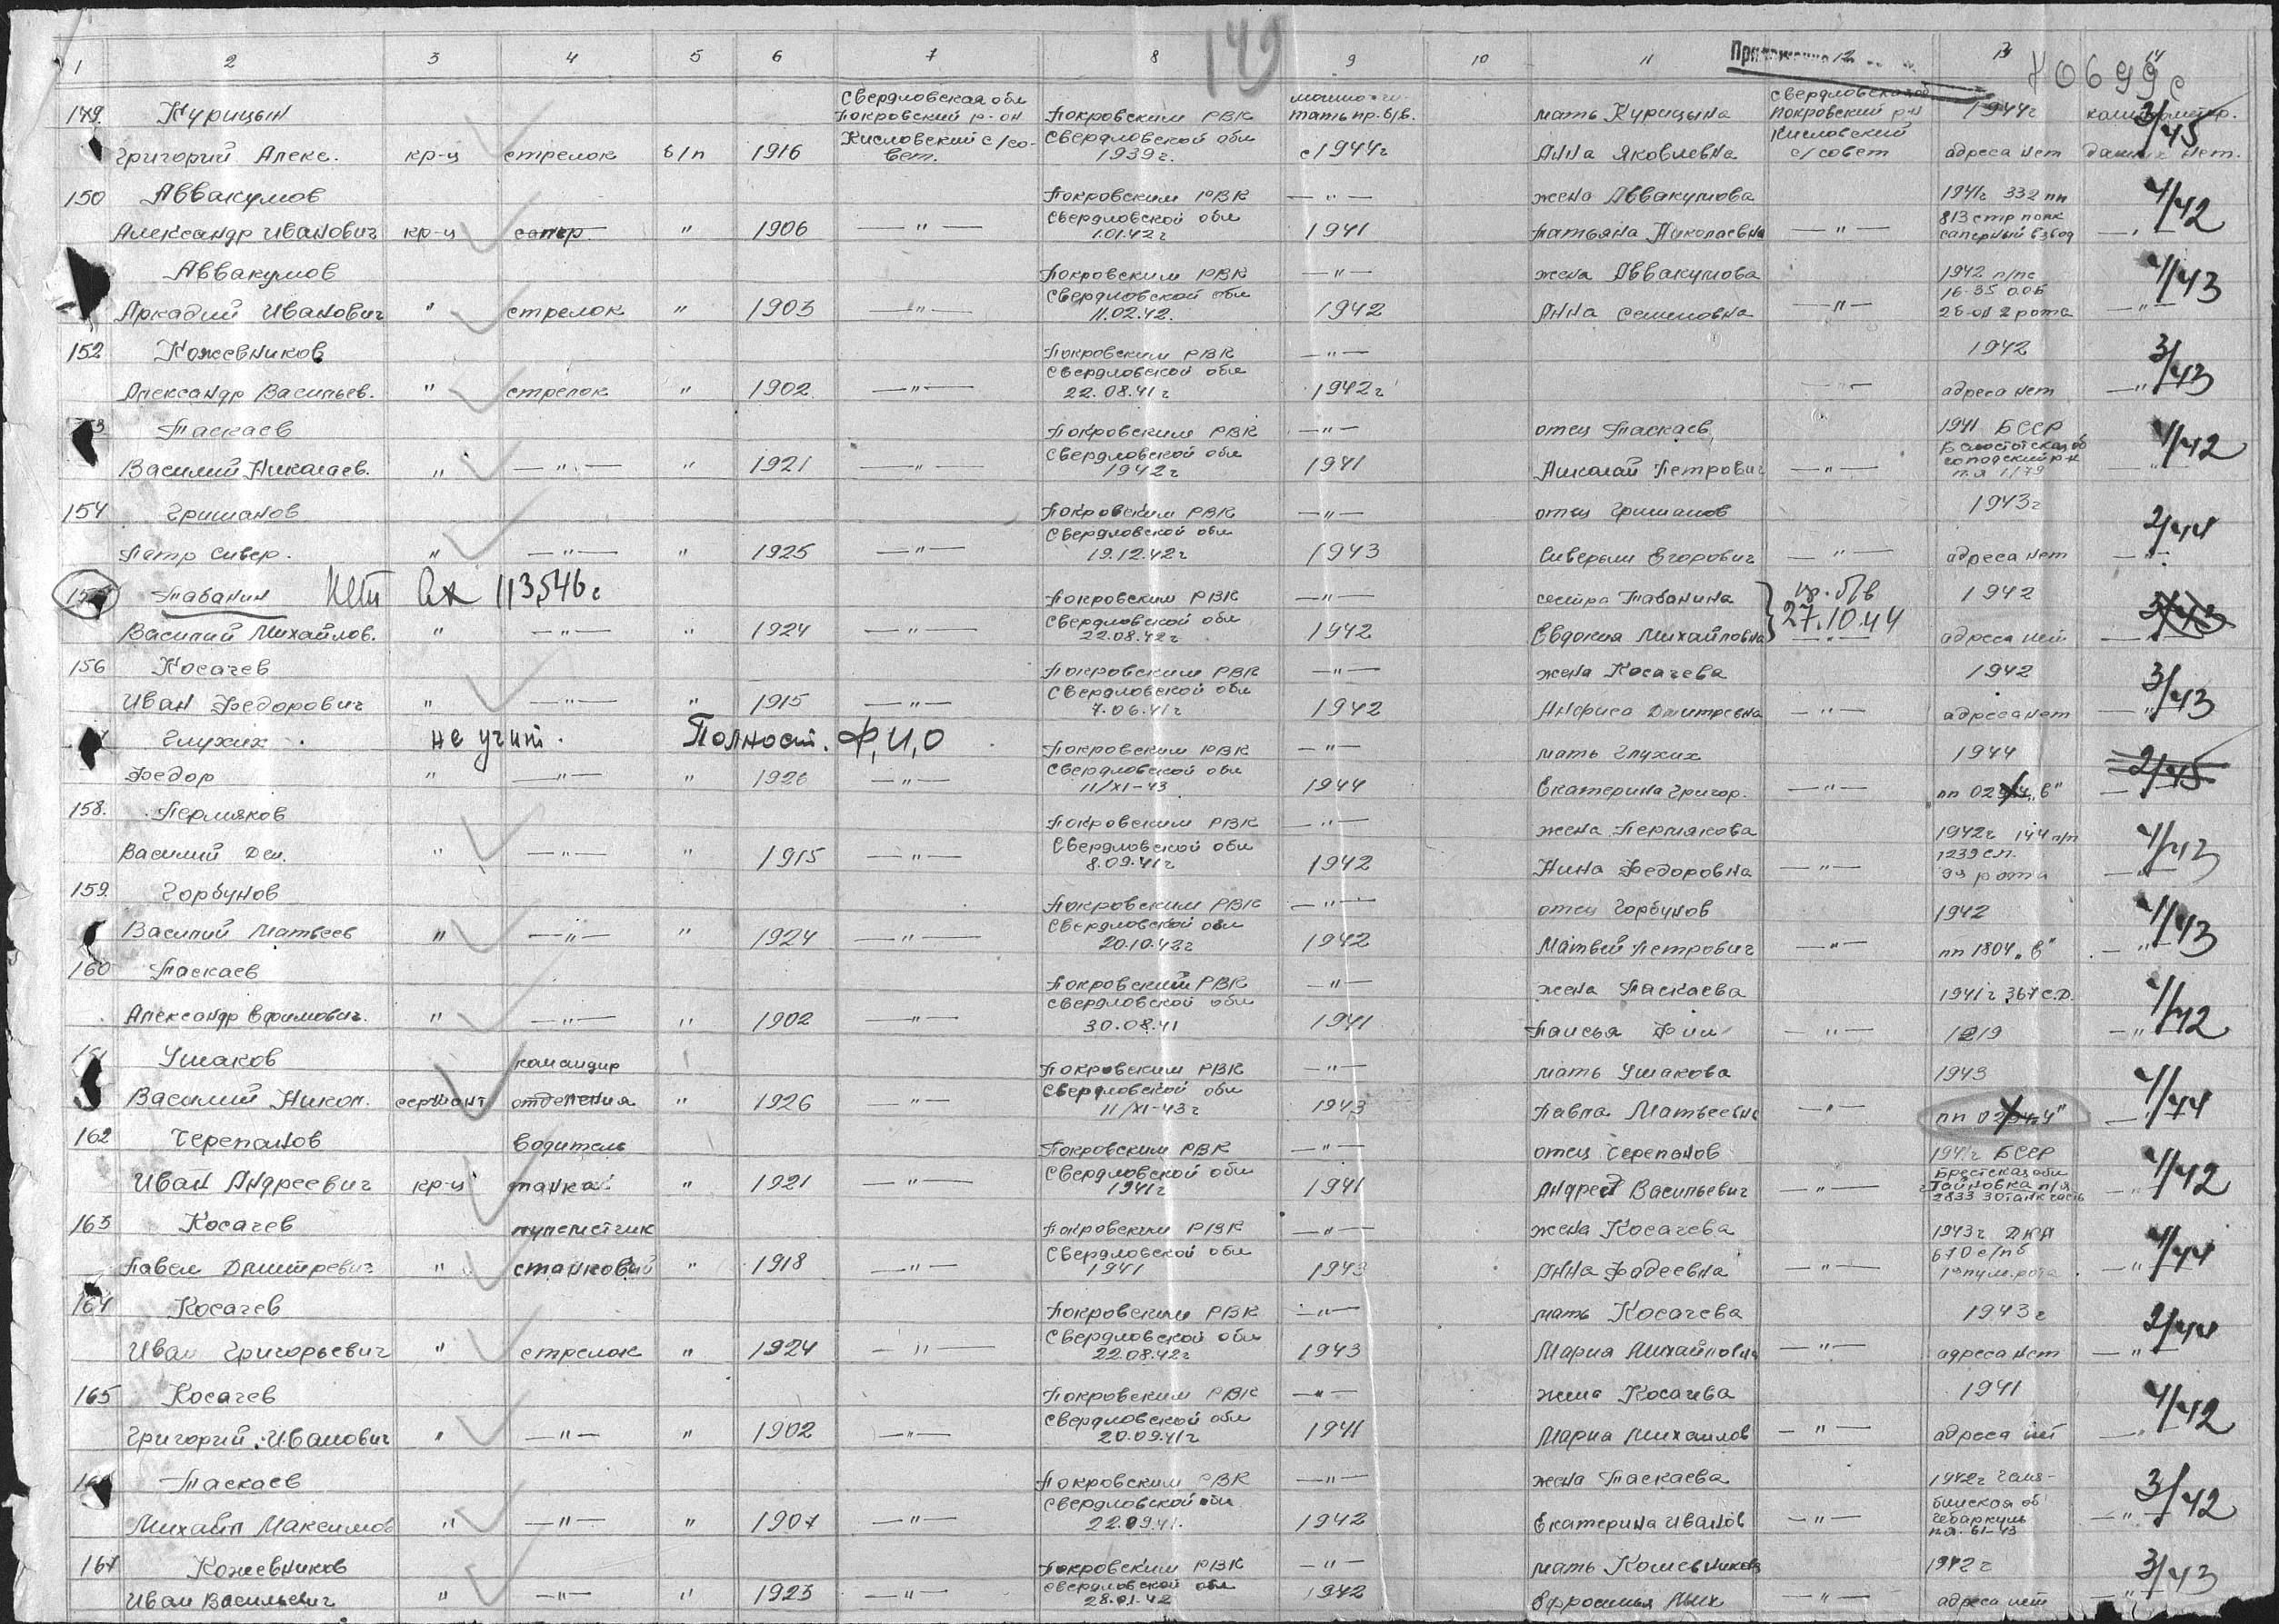 149
Приложение
1 2 3 4 5 6 7 8 9 10 11 12 13 14
149. Курицын Свердловская обл Покровский р-он Покровским РВК мать Курицына Покровский р-н 1944г
Григорий Алекс. кр-ц стрелок б/п 1916 Кисловский с/совет. Свердловской обл 1939г. считать пр. б/в. с 1944г Анна Яковлевна Кисловский с/совет адреса нет данных нет. 3/45
150 Аввакумов Покровским РВК —"— жена Аввакумова 1941г 332 пп 4/42
Александр Иванович кр-ц сапер " 1906 —"— Свердловской обл 1.01.42г 1941 Татьяна Николаевна —"— 813 стр полк саперный взвод —"—
Аввакумов Покровским РВК —"— жена Аввакумова 1942 п/пс 1/43
Аркадий Иванович " стрелок " 1903 —"— Свердловской обл 11.02.42. 1942 Анна Семеновна —"— 16-35 О.О.Б 26-ой 2 рота —"—
152 Кожевников Покровским РВК —"— 1942 3/43
Александр Васильев. " стрелок " 1902 —"— Свердловской обл 22.08.41г 1942г —"— адреса нет —"—
Таскаев Покровским РВК —"— отец Таскаев 1941 БССР 4/42
Василий Николаев. " —"— " 1921 —"— Свердловской обл 1942г 1941 Николай Петрович —"— п.я 1/79 —"—
154 Гришанов Покровским РВК —"— отец Гришанов 1943г 2/44
Петр Сивер. " —"— " 1925 —"— Свердловской обл 19.12.42г 1943 Сиверьян Егорович —"— адреса нет —"—
155 Табанин Нет 113546с Покровским РВК —"— сестра Табанина пр. б/в 27.10.44 1942 3/43
Василий Михайлов. " —"— " 1924 —"— Свердловской обл 22.08.42г 1942 Евдокия Михайловна —"— адреса нет —"—
156 Косачев Покровским РВК —"— жена Косачева 1942 3/43
Иван Федорович " —"— " 1915 —"— Свердловской обл 7.06.41г 1942 Анфиса Дмитревна —"— адреса нет —"—
Глухих не учит. Полност. Ф,И,О Покровским РВК —"— мать Глухих 1944 2/45
Федор " —"— " 1926 —"— Свердловской обл 11/XI-43 1944 Екатерина Григор. —"— —"—
158. Пермяков Покровским РВК —"— жена Пермякова 1942г 144 п/п 4/43
Василий Дем. " —"— " 1915 —"— Свердловской обл 8.09.41г 1942 Нина Федоровна —"— 1239 с.п. рота —"—
159. Горбунов Покровским РВК —"— отец Горбунов 1942 1/43
Василий Матвеев " —"— " 1924 —"— Свердловской обл 20.10.42г 1942 Матвей Петрович —"— пп 1804 "в" —"—
160 Таскаев Покровским РВК —"— жена Таскаева 1941г 367 с.д. 1/42
Александр Ефимович. " —"— " 1902 —"— Свердловской обл 30.08.41 1941 Таисья —"— 1219 —"—
161 Ушаков командир Покровским РВК —"— мать Ушакова 1943 1/44
Василий Никол. сержант отделения " 1926 —"— Свердловской обл 11/XI-43г 1943 Павла Матвеевна —"— —"—
162 Черепанов водитель Покровским РВК —"— отец Черепанов 1941г БССР 4/42
Иван Андреевич кр-ц танка " 1921 —"— Свердловской обл 1941г 1941 Андрей Васильевич —"— Брестская обл Гайновка п/я 2833 30 танк часть —"—
163 Косачев пулеметчик Покровским РВК —"— жена Косачева 1943г ДКА 4/44
Павел Дмитревич " станковый " 1918 —"— Свердловской обл 1941 1943 Анна Фадеевна —"— 670 с/пб 1я пул. рота —"—
164 Косачев Покровским РВК —"— мать Косачева 1943г 2/44
Иван Григорьевич " стрелок " 1924 —"— Свердловской обл 22.08.42г 1943 Мария Михайловна —"— адреса нет —"—
165 Косачев Покровским РВК —"— жена Косачева 1941 4/42
Григорий Иванович " —"— " 1902 —"— Свердловской обл 20.09.41г 1941 Мария Михайлов —"— адреса нет —"—
166 Таскаев Покровским РВК —"— жена Таскаева 1942г Челябинская об 3/42
Михаил Максимов " —"— " 1907 —"— Свердловской обл 22.09.41. 1942 Екатерина Иванов —"— Чебаркуль п.я. 61-43 —"—
167 Кожевников Покровским РВК —"— мать Кожевникова 1942г 3/43
Иван Васильевич " —"— " 1923 —"— Свердловской обл 28.01.42 1942 Ефросинья Мих —"— адреса нет —"—